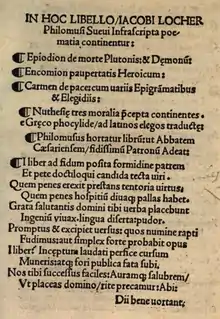 IN HOC LIBELLO/IACOBI LOCHER
Philomusi Sueui Infrascripta poe
matia continentur:
¶ Epiodion de morte Plutonis: & Demonũ
¶ Encomion paupertatis Heroicum:
¶ Carmen de pacercum uariis Epigrãmatibus
& Elegidiis:
¶ Nuthesię tres moralia p̃cepta continentes.
e Gręco phocylide/ad latinos elegos traductę:
¶ Philomusus hortatur librũ:ut Abbatem
Cæsariensem/fidissimũ Patronũ Adeat:
¶ I liber ad fidum posita formidine patrem
Et pete doctiloqui candida tecta uiri.
Quem penes erexit prestans tentoria uirtus:
Quem penes hospitiũ diuaq; pallas habet.
Grata salutantis domini tibi uerba placebunt
Ingeniũ viuax. lingua diserta: pudor.
Promptus & excipiet uersus: quos numine rapti
Fudimus: aut simplex forte probabit opus
I liber: Inceptum laudati perfice cursum
Muneris: atq; fori publica fata subi.
Nos tibi successus faciles: Auramq; salubrem/
Vt placeas domino/rite precamur: Abi:
Dii bene uortant: